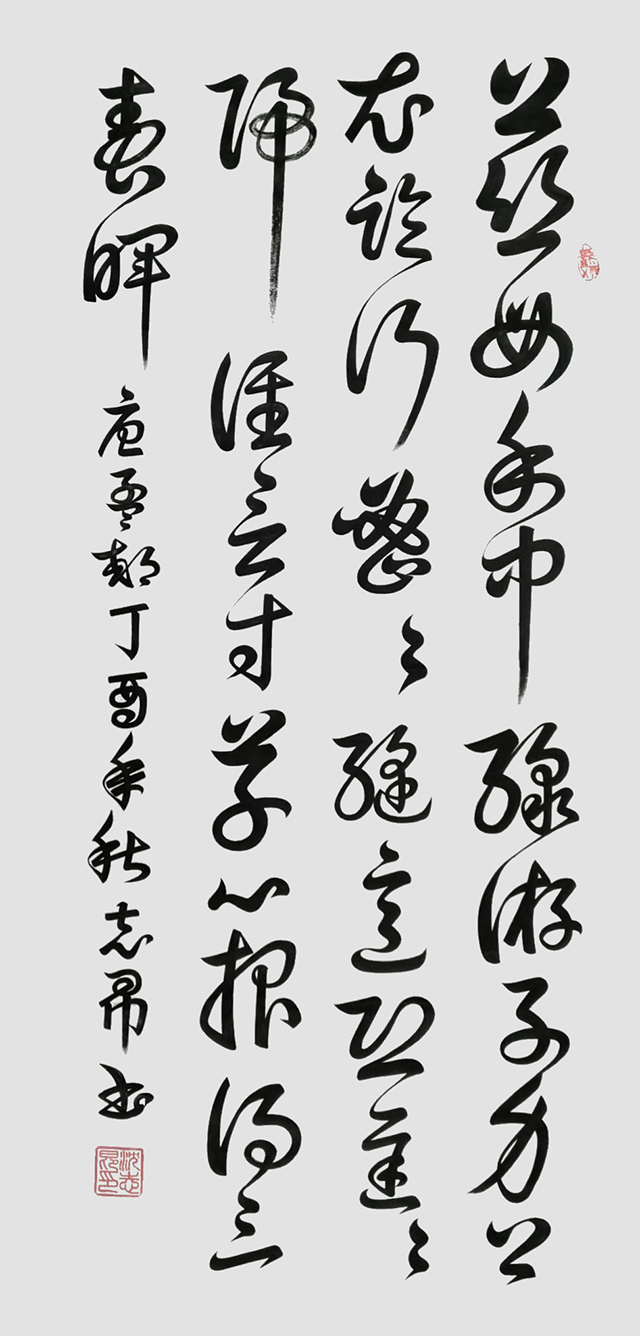 慈母手中線游子身上
衣臨行密々縫意恐遲々
歸誰言寸草心報得三
春暉 唐孟郊丁酉年秋志昂書
沈志昂印